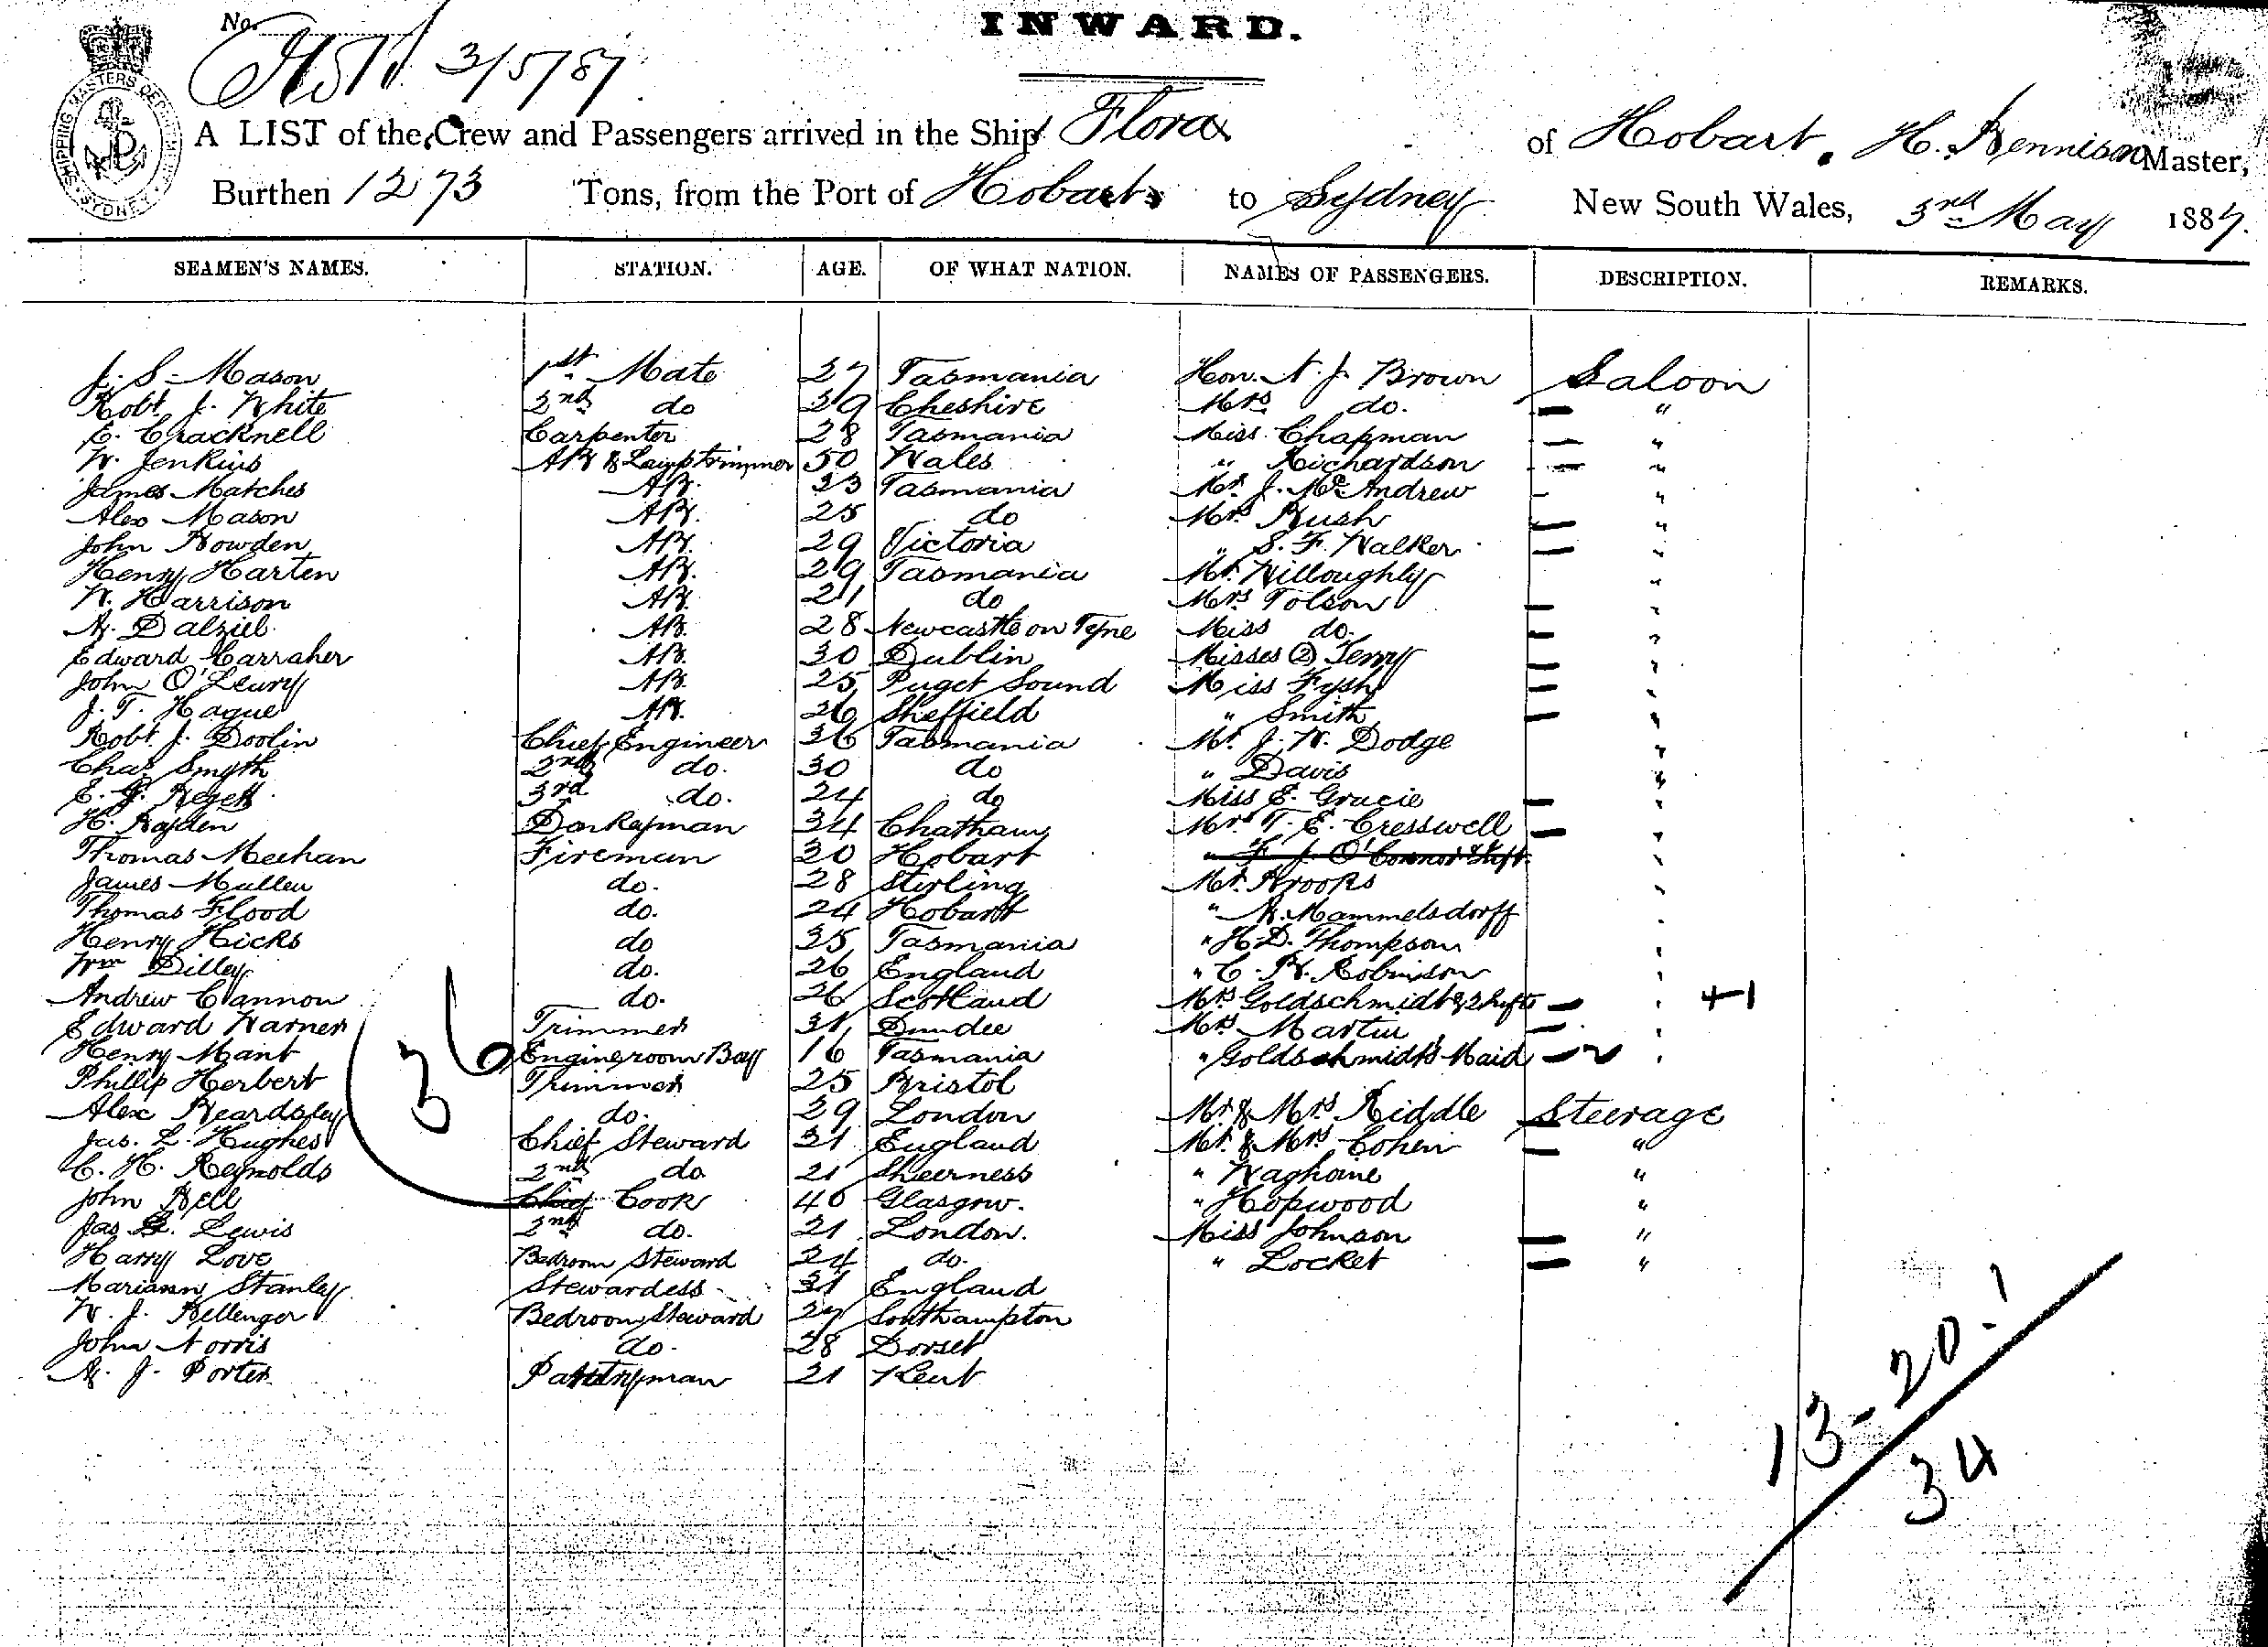 INWARD.
No.
3/5/87
SHIPPING MASTERS DEPARTMENT SYDNEY
A LIST of the Crew and Passengers arrived in the Ship Flora of Hobart. H. Bennison Master,
Burthen 1273 Tons, from the Port of Hobart to Sydney New South Wales, 3rd May 1887.
SEAMEN'S NAMES. STATION. AGE. OF WHAT NATION. NAMES OF PASSENGERS. DESCRIPTION. REMARKS.
J. S. Mason 1st Mate 27 Tasmania Hon. N. J. Brown Saloon
Robt. J. White 2nd do 39 Cheshire Mrs do. "
E. Cracknell Carpenter 28 Tasmania Miss Chapman "
W. Jenkins AB & Lamptrimmer 50 Wales " Richardson "
James Matches AB. 33 Tasmania Mr. J. McAndrew "
Alex Mason AB. 25 do Mrs Bush "
John Bowden AB. 29 Victoria " S. F. Walker "
Henry Harten AB. 29 Tasmania Mr. Willoughby "
W. Harrison AB. 21 do Mrs Tolson "
A. Dalziel AB. 28 Newcastle on Tyne Miss do. "
Edward Carraher AB. 30 Dublin Misses (2) Terry "
John O'Leary AB. 25 Puget Sound Miss Fysh "
J. T. Hague AB. 26 Sheffield " Smith "
Robt. J. Doolin Chief Engineer 36 Tasmania Mr. J. W. Dodge "
Chas Smyth 2nd do. 30 do " Davis "
E. J. 3rd do. 24 do Miss E. Gracie "
H. Boyden Donkeyman 34 Chatham Mrs T. E. Cresswell "
Thomas Meehan Fireman 30 Hobart " F. J. O'Connor & Inft. "
James Mullen do. 28 Stirling Mr. Brooks "
Thomas Flood do. 24 Hobart " Mammelsdorff "
Henry Hicks do 35 Tasmania " H. D. Thompson "
Wm Dilley do. 26 England " C. B. Robinson "
Andrew Cannon do. 26 Scotland Mrs Goldschmidt & 2 Infts " +1
Edward Warner Trimmer 31 Dundee Mrs Martin "
Henry Mant Engineroom Boy 16 Tasmania " Goldschmidt's Maid "
Phillip Herbert Trimmer 25 Bristol
36
Alex Beardsley do. 29 London Mr. & Mrs Riddle Steerage
Jas. L. Hughes Chief Steward 31 England Mr. & Mrs Cohen "
C. H. Reynolds 2nd do 21 Sheerness " Waghorne "
John Bell Chief Cook 40 Glasgow. " Hopwood "
Jas G. Lewis 2nd do. 21 London. Miss Johnson "
Harry Love Bedroom Steward 24 do. " Locket "
Mariann Stanley Stewardess 31 England
W. J. Bellenger Bedroom Steward 27 Southampton
John Norris do. 28 Dorset
A. J. Porter Pantryman 21 Kent
13-20-1
34